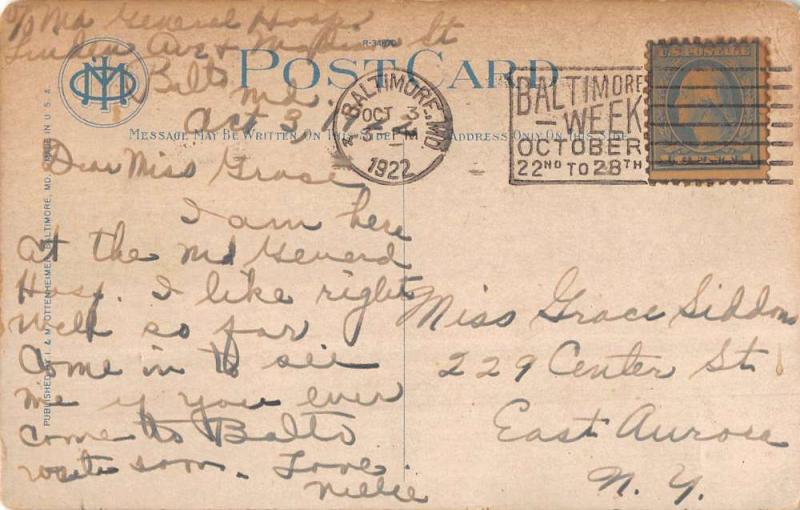 % Md General Hosp.
Linden Ave & Madison St
Balto
Md.
Oct 3
R-34870
POST CARD
MESSAGE MAY BE WRITTEN ON THIS SIDE
ADDRESS ONLY ON THIS SIDE
BALTIMORE, MD.
OCT 3
PM
1922
BALTIMORE
WEEK
OCTOBER
22ND TO 28TH
U.S. POSTAGE
Dear Miss Grace
I am here
at the Md General
Hosp. I like right
well so far
Come in to see
me if you ever
come to Balto
write soon. Love.
Nellie
Miss Grace Siddons
229 Center St.
East Aurora
N. Y.
PUBLISHED BY I. & M. OTTENHEIMER, BALTIMORE, MD. MADE IN U.S.A.